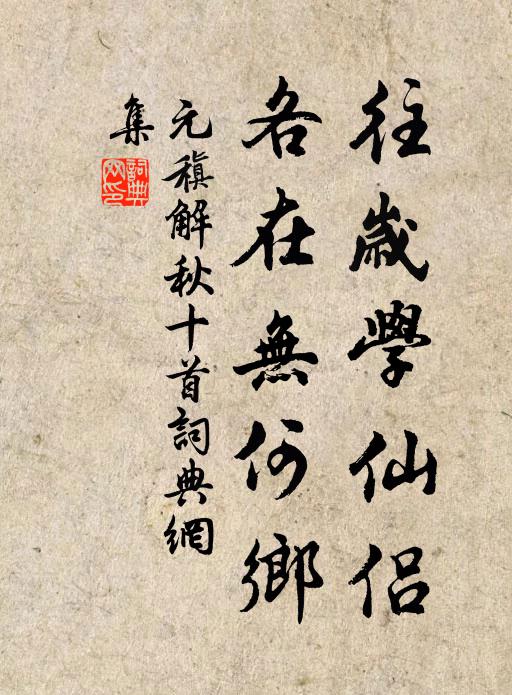 往歲學仙侶
各在無何鄉
元稹解秋十首詞典網
集
詞典
网印